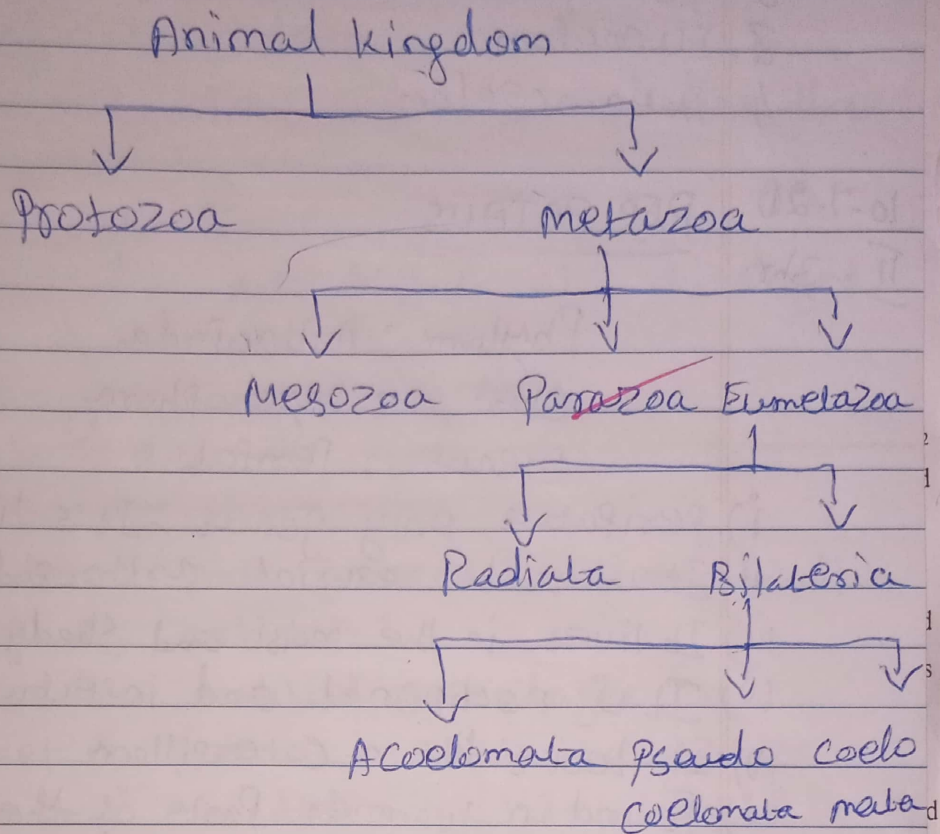 Animal kingdom
Protozoa metazoa
Mesozoa Parazoa Eumetazoa
Radiata Bilateria
Acoelomata Psaudo coelo
coelomata mata